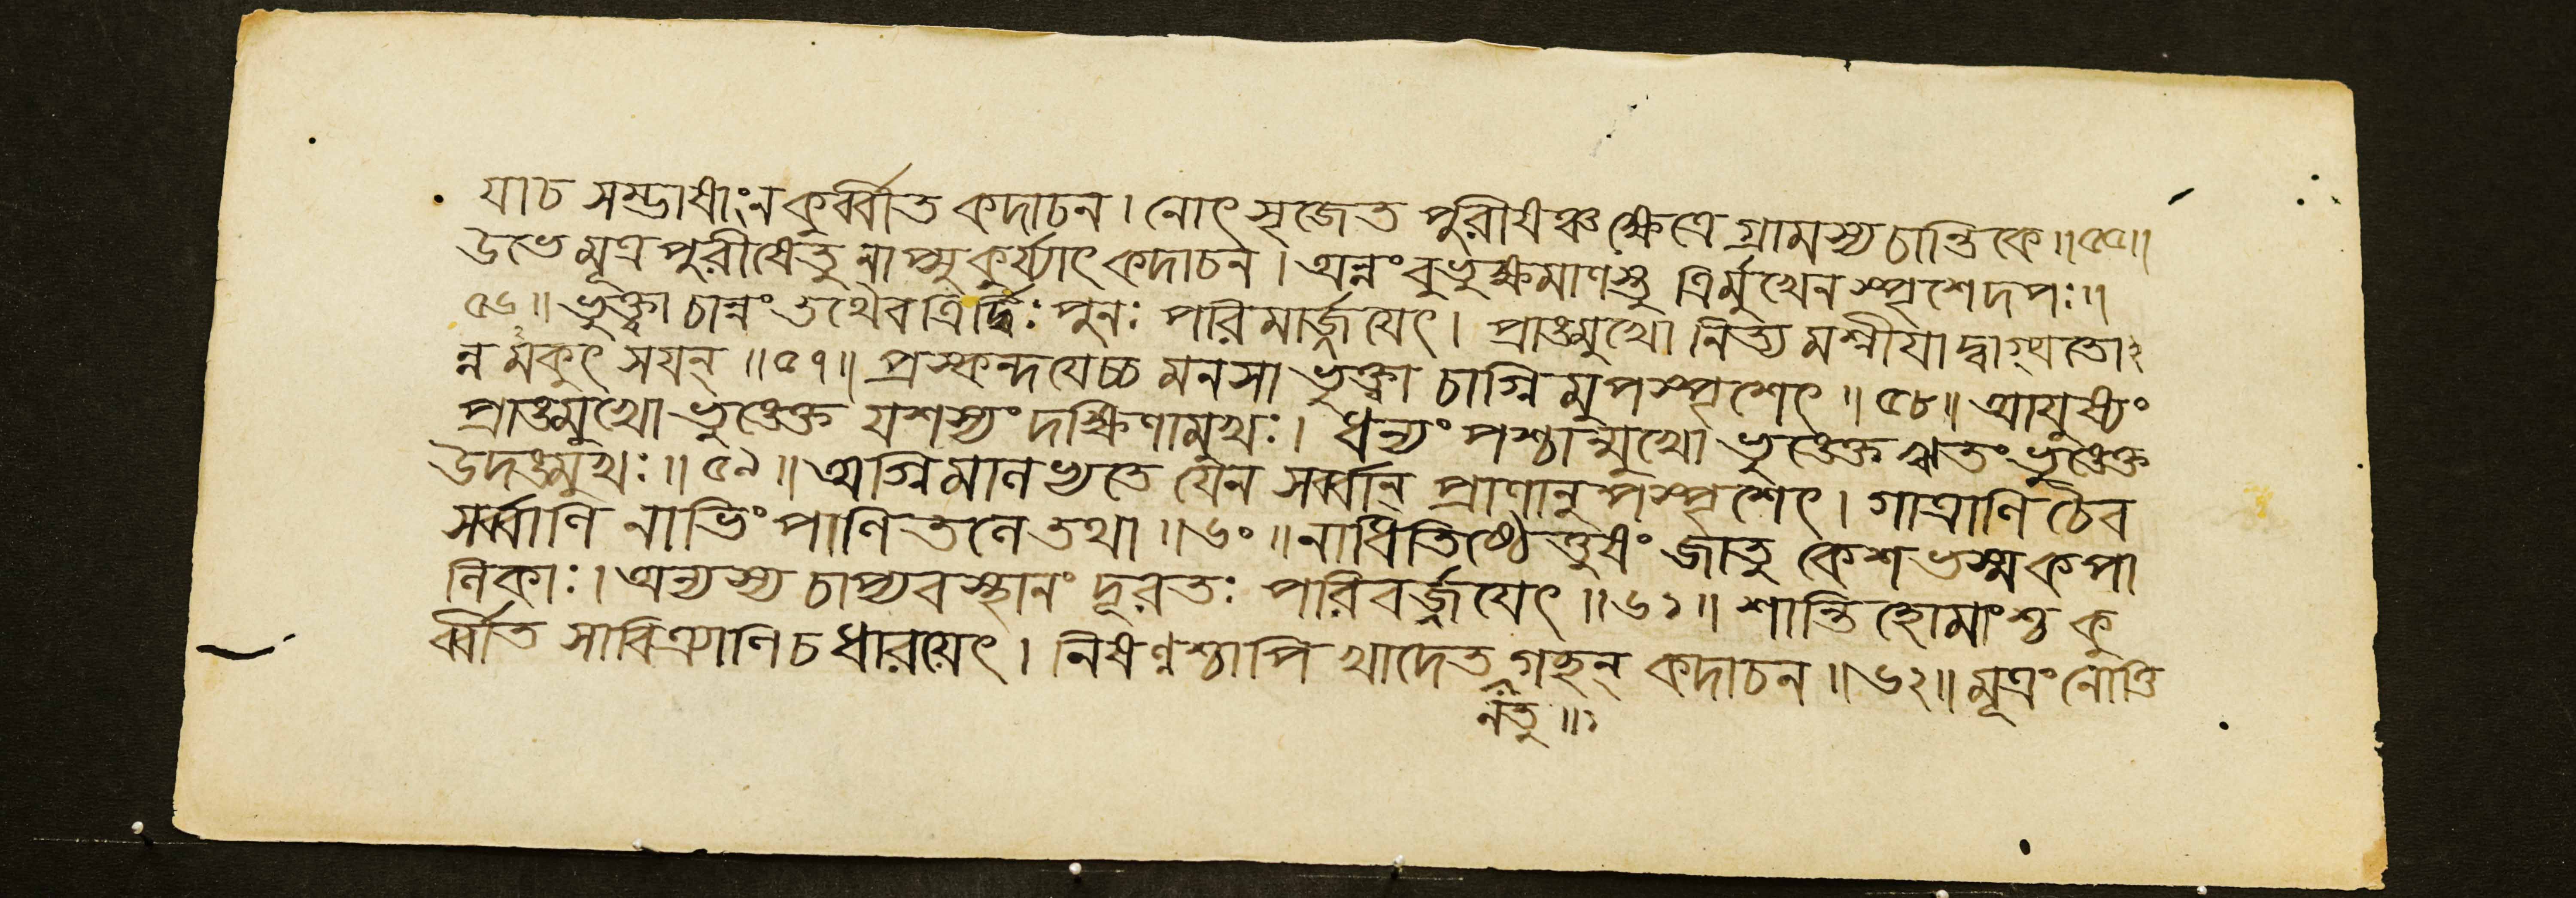 যাচ সম্ভাষাং ন কুর্ব্বীত কদাচন । নোৎসৃজেত পুরীষঞ্চ ক্ষেত্রে গ্রামস্য চান্তিকে ॥ ৫৫ ॥
উভে মূত্রপুরীষেতু নাপ্সু কুর্য্যাৎ কদাচন । অন্নং বুভুক্ষমাণস্তু ত্রির্মুখেন স্পৃশেদপঃ ॥
৫৬ ॥ ভুক্ত্বা চান্নং তথৈব ত্রির্দ্বিঃ পুনঃ পরিমার্জ্জয়েৎ । প্রাঙমুখো নিত্যমশ্নীয়াদ্বাগ্যতো২
ন্নমকুৎসয়ন্ ॥ ৫৭ ॥ প্রস্কন্দয়েচ্চ মনসা ভুক্ত্বা চাগ্নিমুপস্পৃশেৎ ॥ ৫৮ ॥ আয়ুষ্যং
প্রাঙমুখো ভুঙেক্ত যশস্যং দক্ষিণামুখঃ । ধন্যং পশ্চান্মুখো ভুঙেক্ত ঋতং ভুঙেক্ত
উদঙমুখঃ ॥ ৫৯ ॥ অগ্নিমালভ্যতে যেন সর্ব্বান্ প্রাণানুপস্পৃশেৎ । গাত্রাণি চৈব
সর্ব্বাণি নাভিং পাণিতলে তথা ॥ ৬০ ॥ নাধিতিষ্ঠেত্তুষং জাতু কেশভস্মকপা
লিকাঃ । অন্যস্য চাপ্যবস্থানং দূরতঃ পরিবর্জ্জয়েৎ ॥ ৬১ ॥ শান্তিহোমাংশ্চ কু
র্ব্বীত সাবিত্রাণি চ ধারয়েৎ । নিষণ্ণশ্চাপি খাদেত গছন্ কদাচন ॥ ৬২ ॥ মূত্রং নোত্তি
নতু ॥ ১